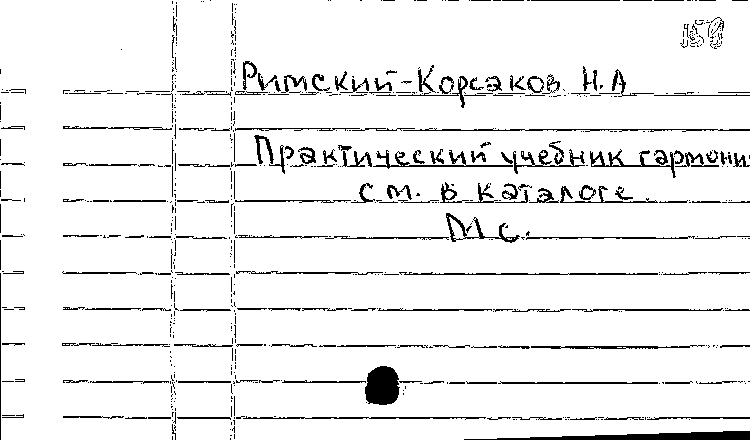 Римский-Корсаков Н.А
Практический учебник гармони
см. в каталоге.
Мс.